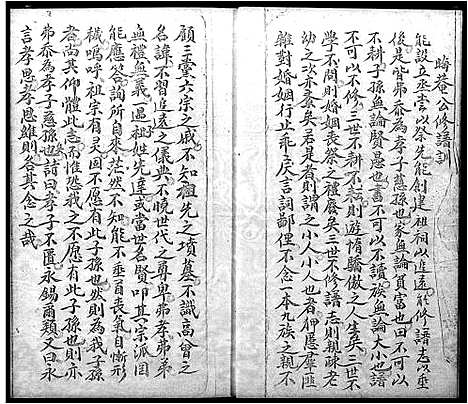 晦菴公修譜訓
能設立丞嘗以祭先能創建祖祠以追遠能修譜志以垂
後是皆弗忝為孝子慈孫也家無論貧富也田不可以
不耕子孫無論賢愚也書不可以不讀族無論大小也譜
不可以不修三世不耕不耘則遊惰驕傲之人生矣三世不
學不問則婚姻喪祭之禮廢矣三世不修譜志則親踈老
幼之次亦紊矣若是者則謂之小人小人也者狎慝羣匪
雜對婚姻行止乖戾言詞鄙俚不念一本九族之親不
顧三黨六宗之戚不知祖先之墳墓不識高曾之
名諱不習追遠之儀典不曉世代之尊卑弗孝弗弟
無禮無義一遇祖姓先達或當世名賢叩其宗派固
能應答詢所自來茫然不知能不垂首喪氣自慚形
穢嗚呼祖宗有灵固不愿有此子孫也然則為我子孫
者尚其仰體此志而惟恐我之不愿有此子孫也則亦
弗忝為孝子慈孫也詩曰孝子不匱永錫爾類又曰永
言孝思孝思維則各其念之哉